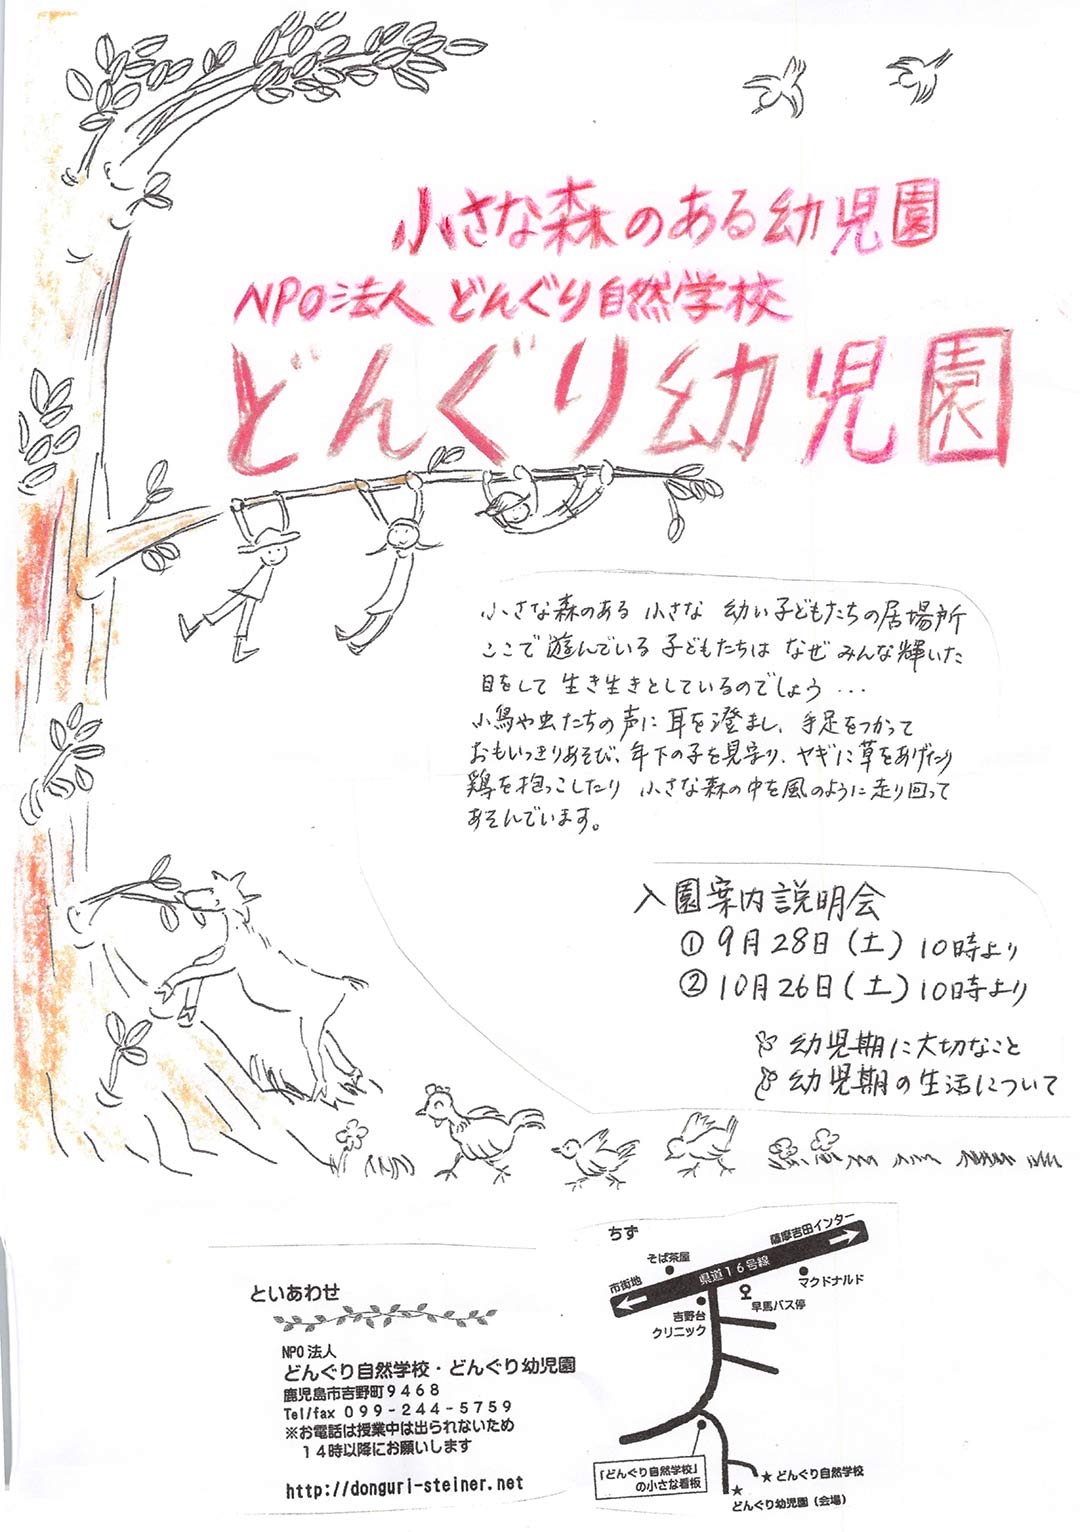 小さな森のある幼児園
NPO法人 どんぐり自然学校
どんぐり幼児園
小さな森のある 小さな 幼い子どもたちの居場所
ここで遊んでいる 子どもたちは なぜ みんな輝いた
目をして 生き生きとしているのでしょう・・・
小鳥や虫たちの声に 耳を澄まし、手足をつかって
おもいっきりあそび、年下の子を見守り、ヤギに草をあげたり
鶏を抱っこしたり 小さな森の中を風のように走り回って
あそんでいます。
入園案内説明会
① 9月28日(土) 10時より
② 10月26日(土) 10時より
幼児期に大切なこと
幼児期の生活について
といあわせ
NPO法人
どんぐり自然学校・どんぐり幼児園
鹿児島市吉野町9468
Tel/fax 099-244-5759
※お電話は授業中は出られないため
14時以降にお願いします
http://donguri-steiner.net
ちず
薩摩吉田インター
そば茶屋
市街地
県道16号線
マクドナルド
早馬バス停
吉野台
クリニック
「どんぐり自然学校」
の小さな看板
★どんぐり自然学校
★
どんぐり幼児園(会場)